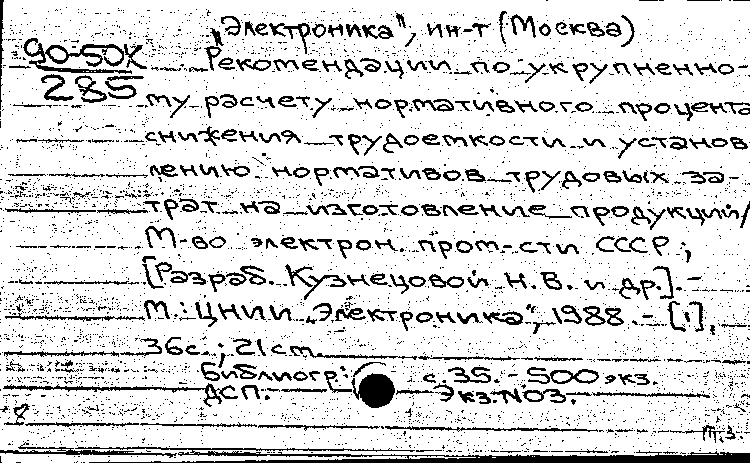 „Электроника", ин-т (Москва)
90-50Х
285
Рекомендации по укрупненно-
му расчету нормативного процента
снижения трудоемкости и установ
лению нормативов трудовых за-
трат на изготовление продукции/
М-во электрон. пром-сти СССР;
[Разраб. Кузнецовой Н.В. и др.]. -
М.: ЦНИИ „Электроника", 1988. - [1],
36с.; 21cm.
Библиогр: с. 35. - 500 экз.
ДСП. Экз.№03.
т.з.